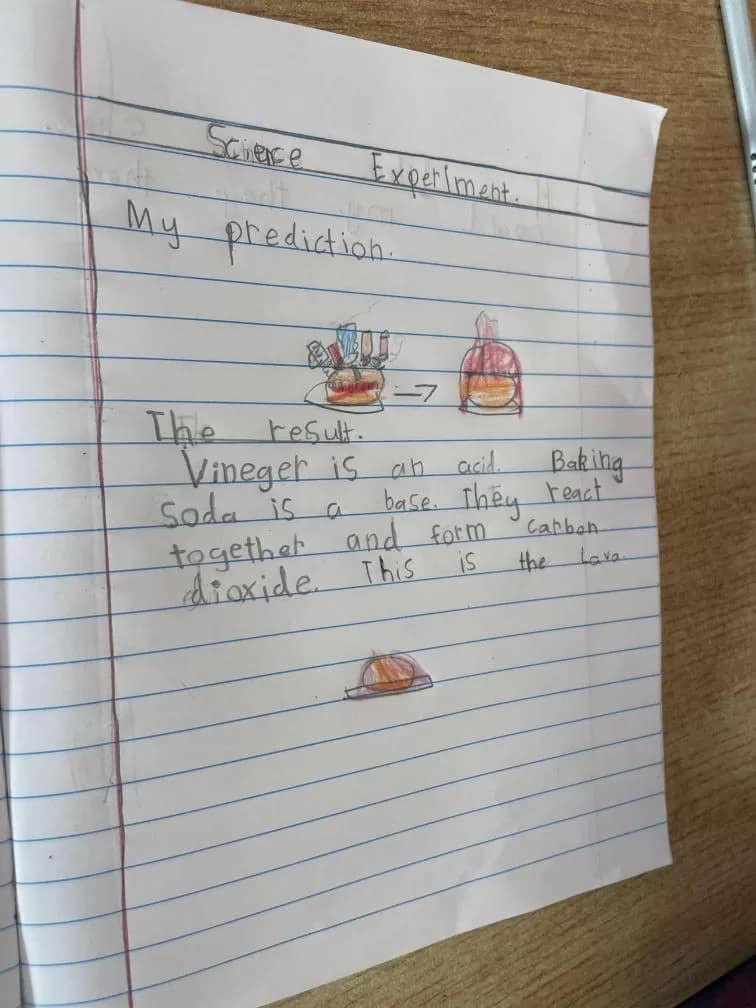 Science Experiment.
My prediction.
The result.
Vineger is an acid. Baking
soda is a base. They react
together and form carbon
dioxide. This is the Lava